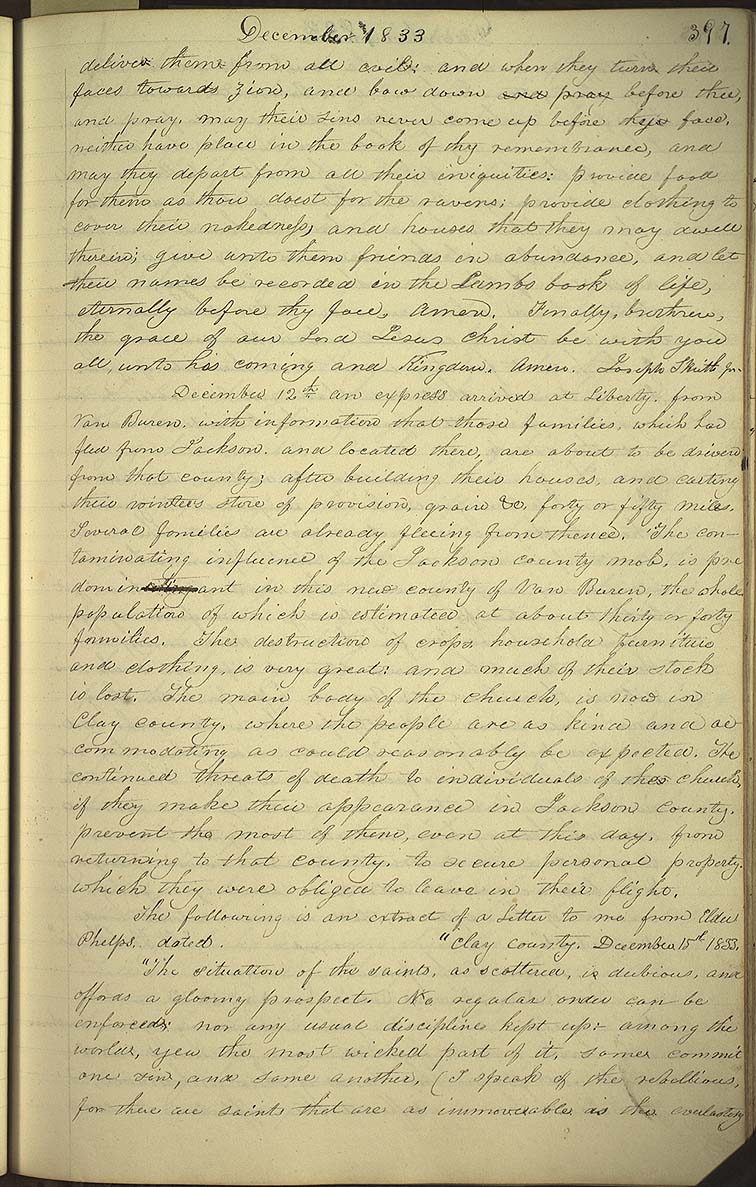 December 1833
397.
deliver them from all evil: and when they turn their
faces towards Zion, and bow down and pray before thee,
and pray, may their sins never come up before thy face,
neither have place in the book of thy remembrance, and
may they depart from all their iniquities: provide food
for them as thou doest for the ravens; provide clothing to
cover their nakedness, and houses that they may dwell
therein; give unto them friends in abundance, and let
their names be recorded in the Lambs book of life,
eternally before thy face, Amen. Finally, brethren,
the grace of our Lord Jesus Christ be with you
all, unto his coming and Kingdom. Amen. Joseph Smith Jr.
December 12th an express arrived at Liberty. from
Van Buren. with information that those families, which had
fled from Jackson. and located there, are about to be driven
from that county; after building their houses, and carting
their winters store of provision, grain &c. forty or fifty miles.
Several families are already fleeing from thence. The con-
taminating influence of the Jackson county mob, is pre
dominant in this new county of Van Buren, the whole
population of which is estimated at about thirty or forty
families. The destruction of crops, household furniture
and clothing, is very great: and much of their stock
is lost. The main body of the church, is now in
Clay county, where the people are as kind and ac
commodating as could reasonably be expected. The
continued threats of death to individuals of the church,
if they make their appearance in Jackson County.
prevent the most of them, even at this day, from
returning to that county, to secure personal property.
which they were obliged to leave in their flight.
The following is an extract of a Letter to me from Elder
Phelps, dated. "Clay County. December 15th 1833.
"The situation of the saints, as scattered, is dubious, and
affords a gloomy prospect. No regular order can be
enforced: nor any usual discipline kept up:- among the
world, yea the most wicked part of it, some commit
one sin, and some another, (I speak of the rebellious,
for there are saints that are as immoveable as the everlasting